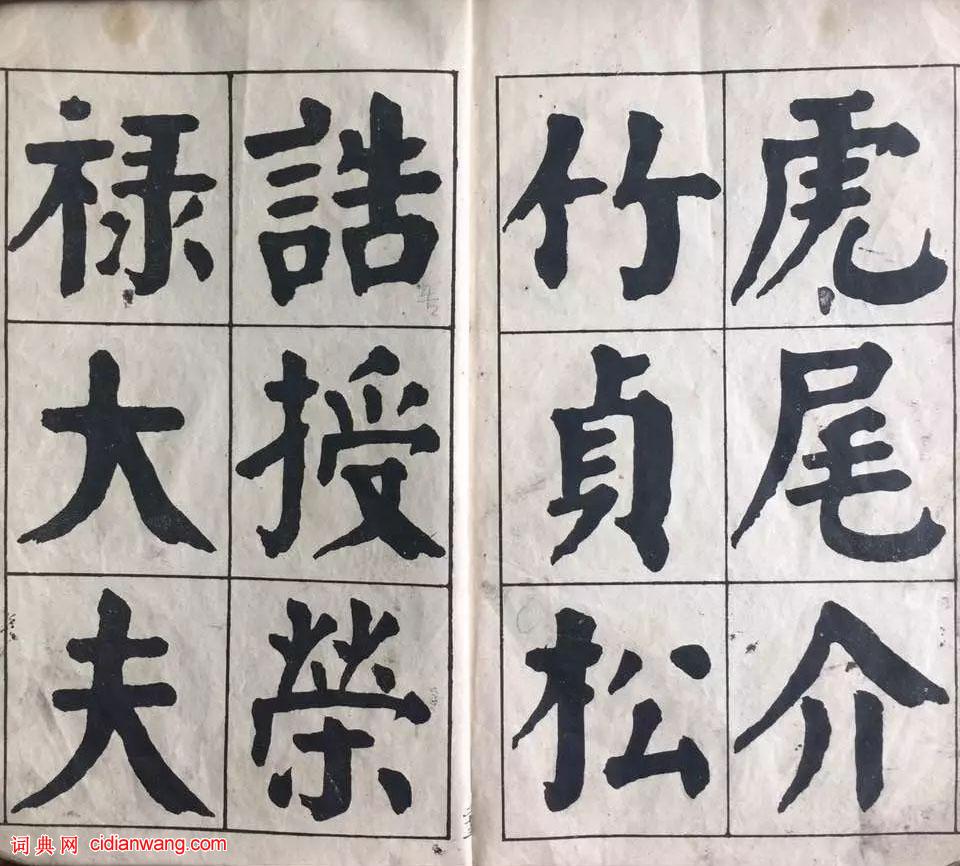 虎尾介
竹貞松
誥授榮
禄大夫
词典网 cidianwang.com